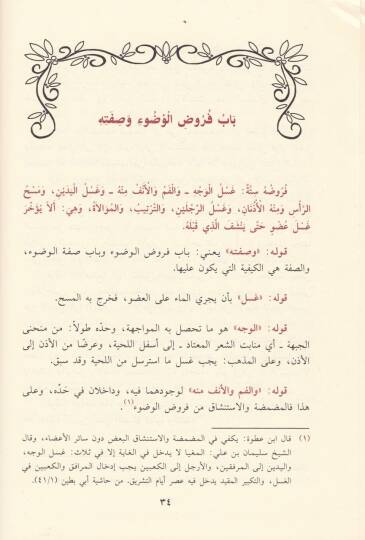 بَابُ فُرُوضِ الْوُضُوءِ وَصِفَتِهِ
فُرُوضُهُ سِتَّةٌ: غَسْلُ الْوَجْهِ ـ وَالْفَمُ وَالْأَنْفُ مِنْهُ ـ وَغَسْلُ الْيَدَيْنِ، وَمَسْحُ
الرَّأْسِ وَمِنْهُ الْأُذُنَانِ، وَغَسْلُ الرِّجْلَيْنِ، وَالتَّرْتِيبُ، وَالْمُوَالَاةُ، وَهِيَ: أَلَّا يُؤَخِّرَ
غَسْلَ عُضْوٍ حَتَّى يَنْشَفَ الَّذِي قَبْلَهُ.
قوله: «وصفته» يعني: باب فروض الوضوء وباب صفة الوضوء،
والصفة هي الكيفية التي يكون عليها.
قوله: «غسل» بأن يجري الماء على العضو، فخرج به المسح.
قوله: «الوجه» هو ما تحصل به المواجهة، وحدّه طولاً: من منحنى
الجبهة ـ أي منابت الشعر المعتاد ـ إلى أسفل اللحية، وعرضًا من الأذن إلى
الأذن، وعلى المذهب: يجب غسل ما استرسل من اللحية وقد سبق.
قوله: «والفم والأنف منه» لوجودهما فيه، وداخلان في حَدّه، وعلى
هذا فالمضمضة والاستنشاق من فروض الوضوء(١).
(١) قال ابن عطوة: يكفي في المضمضة والاستنشاق البعض دون سائر الأعضاء، وقال
الشيخ سليمان بن علي: المغيا لا يدخل في الغاية إلا في ثلاث: غسل الوجه،
واليدين إلى المرفقين، والأرجل إلى الكعبين يجب إدخال المرافق والكعبين في
الغسل، والتكبير المقيد يدخل فيه عصر أيام التشريق. من حاشية أبي بطين (٤١/١)
٣٤